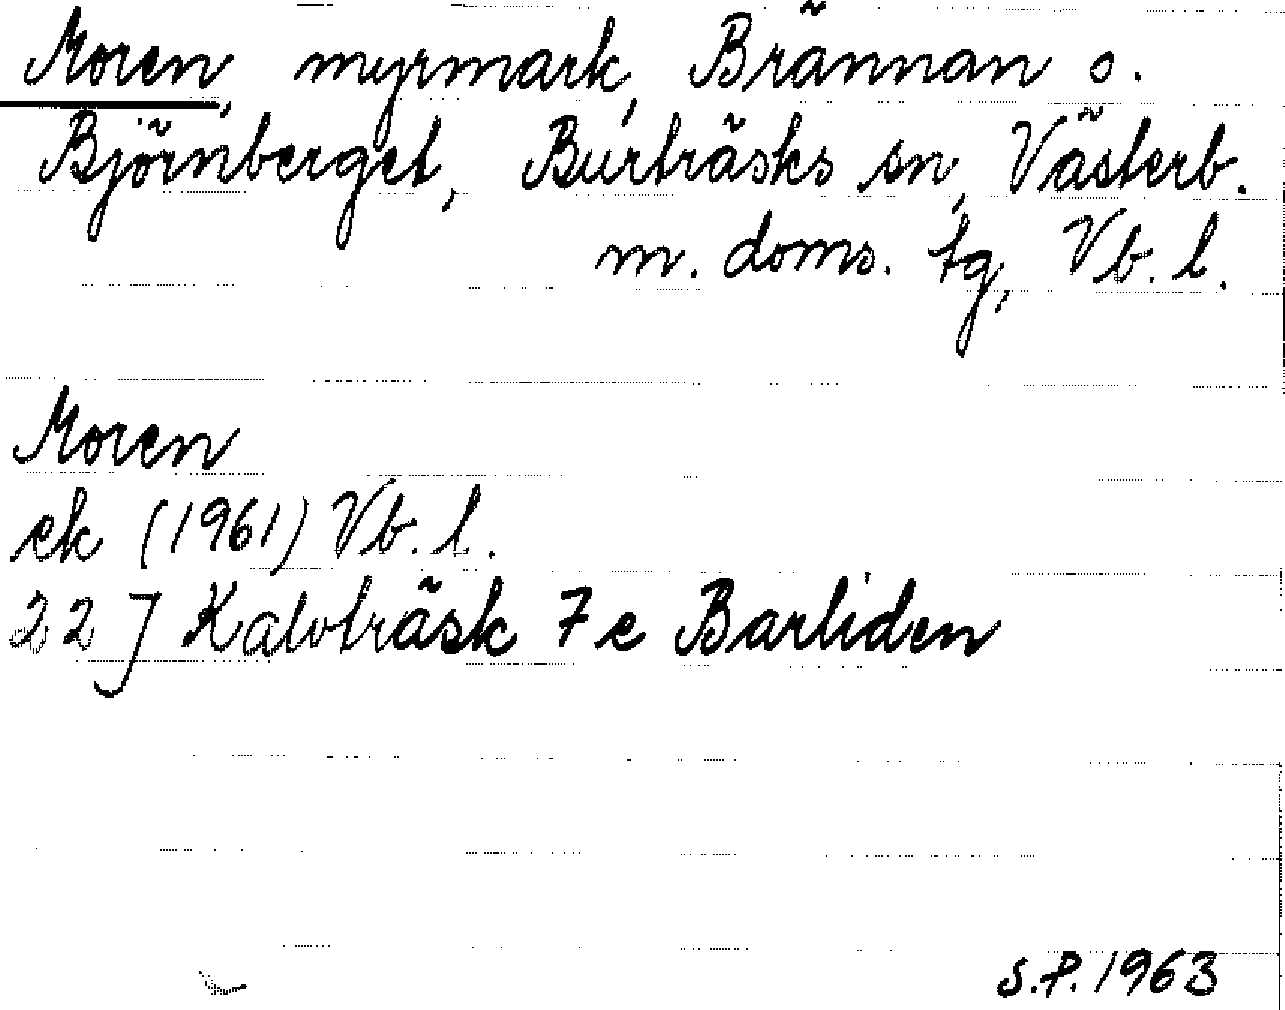 Moren, myrmark, Brännan o.
Björnberget, Burträsks sn, Västerb.
m. doms. tg, Vb. l.
Moren
ek (1961) Vb. l.
22 J Kalvträsk 7 e Barliden
S.P. 1963